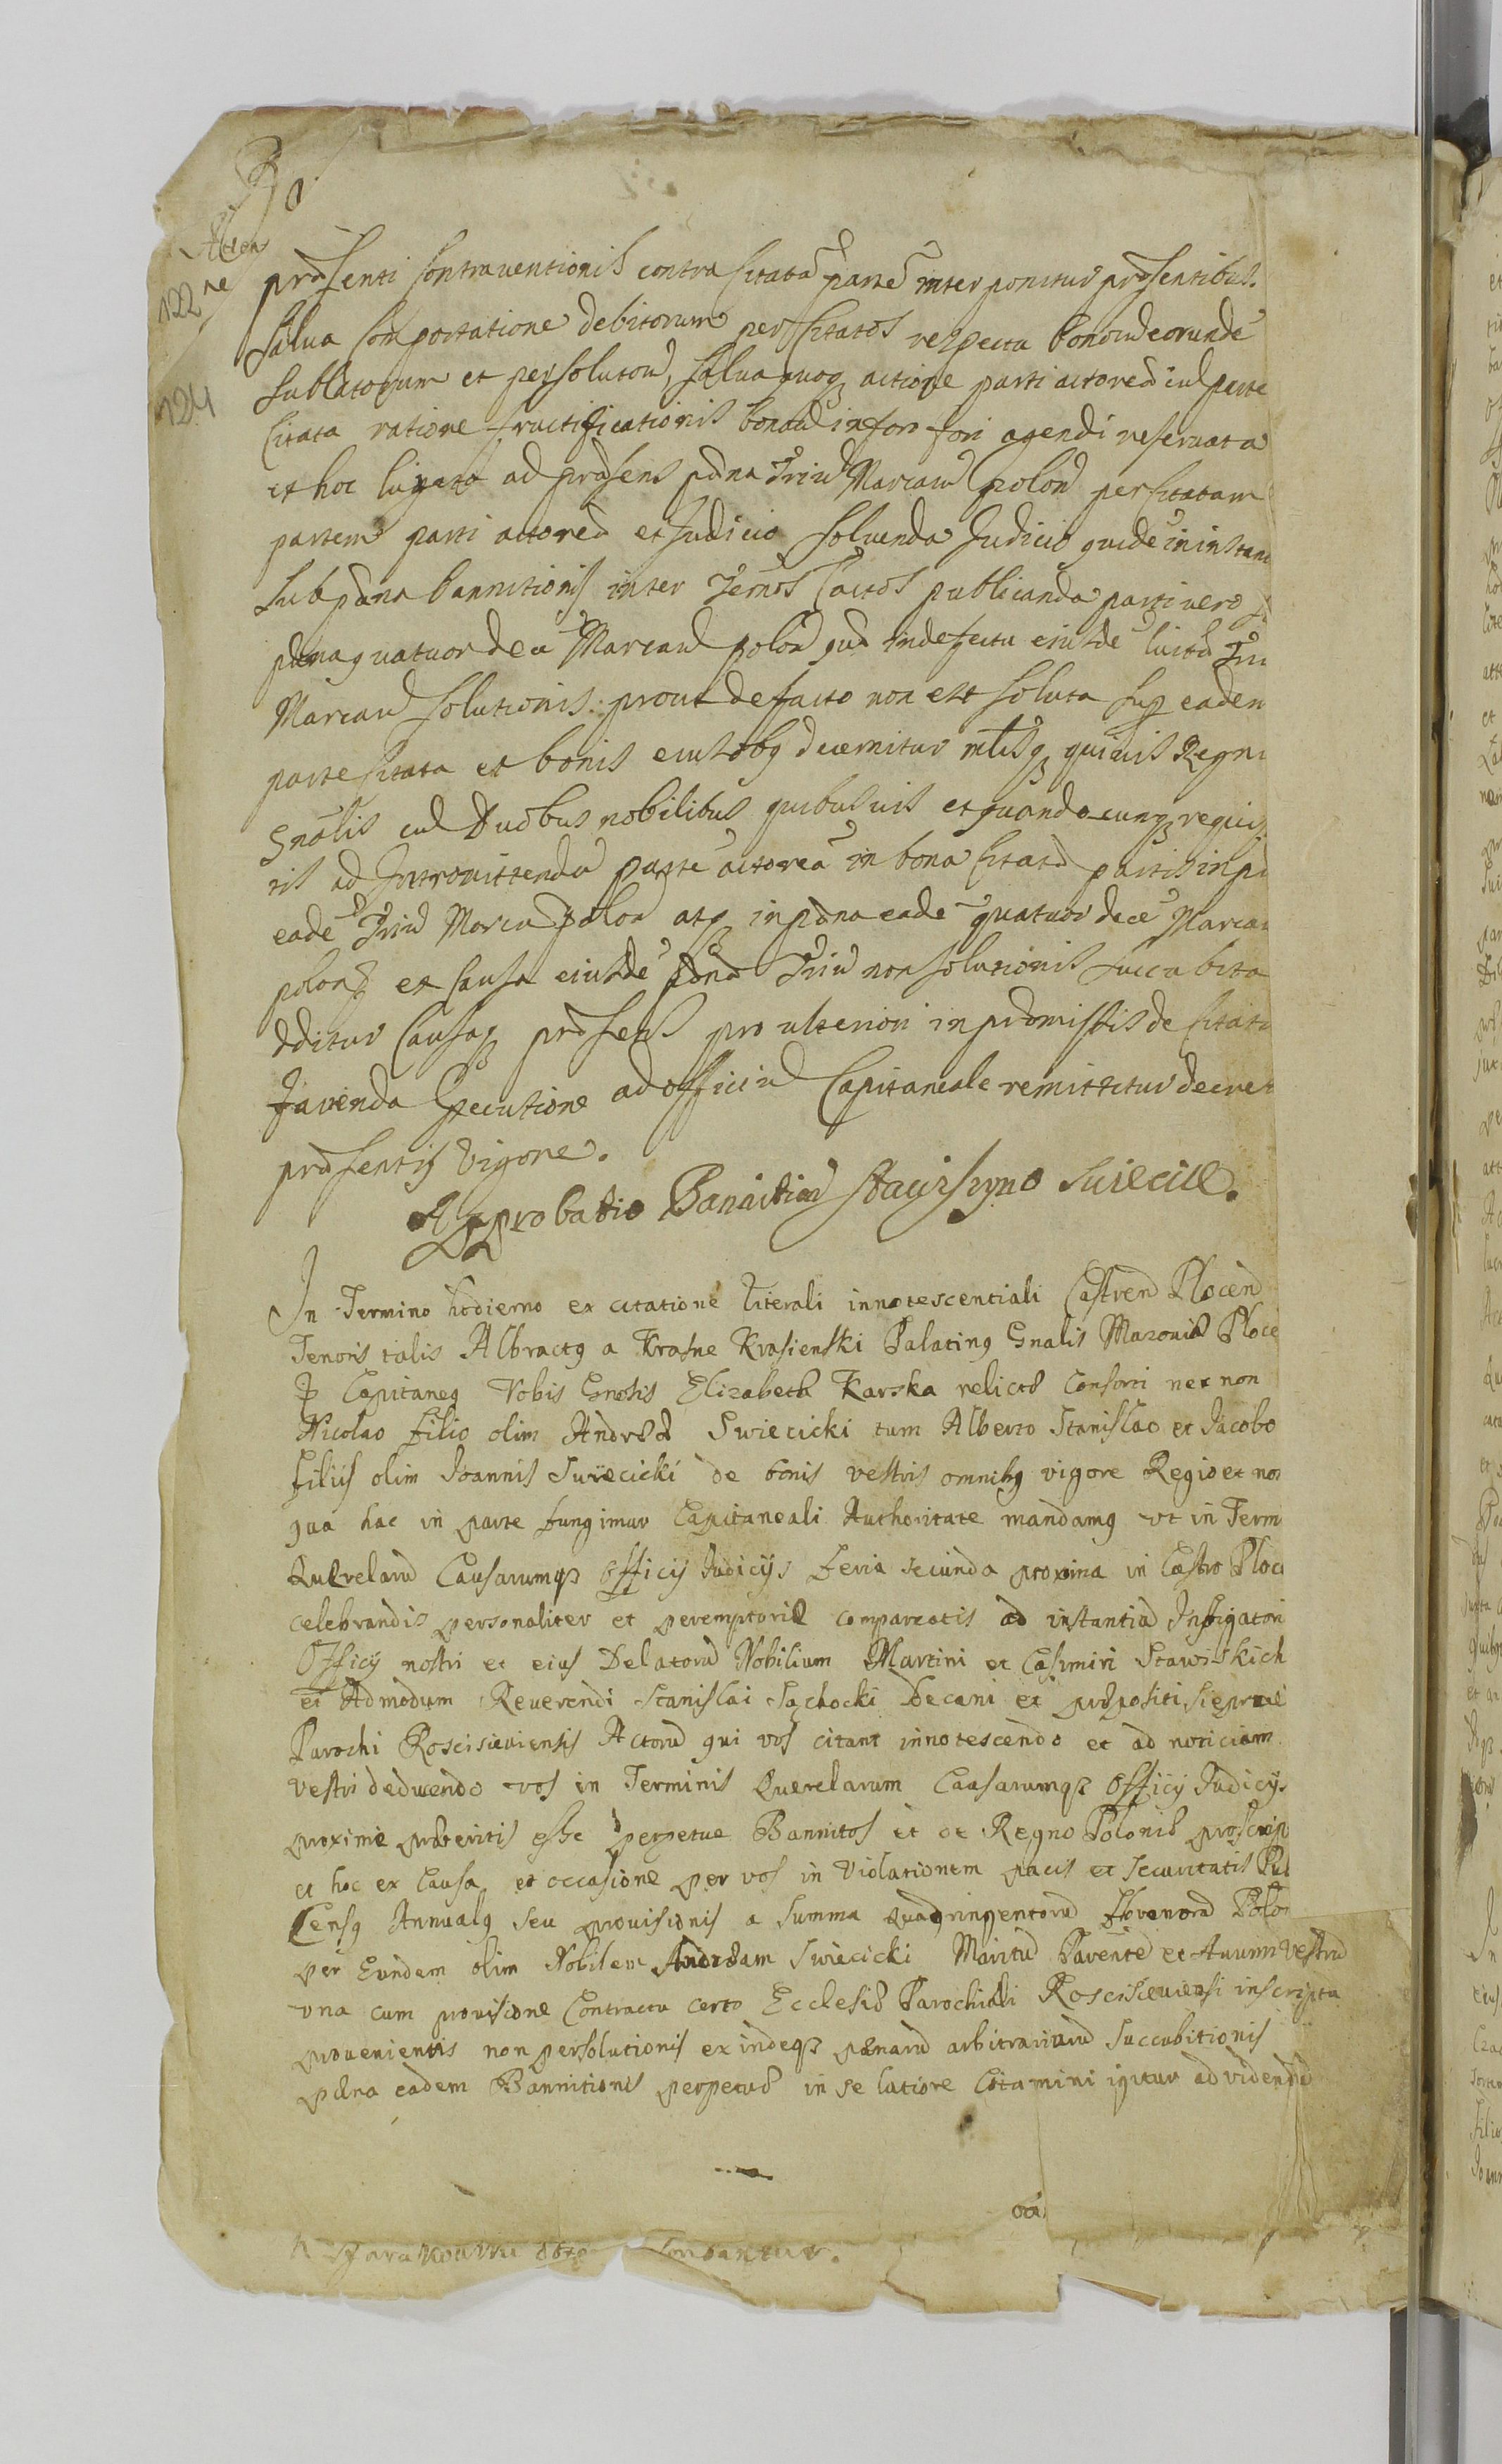 122
124
præsenti Contraventionis contra Citatā partē interponitur præsentibus.
Salva Comportatione debitorum per Citatos respectu bonorū eorundē
Sublatorum et persolutorū, Salva quoq actione parti actoreæ cū parte
Citata ratione fructificationis bonorū in foro fori agendi reservata
et hoc ad præsens pæna Triū Marcarū polon per Citatam
partem parti actoreæ et Judicio Solvenda Judicio quidē in instan
Sub pæna bannitionis inter publicanda parti vero
pæna quatuordecē Marcarū polon in defectu eiusdē Tri
Marcarū Solutionis: prout de facto non est Soluta Sup eadem
parte Citata et bonis eius decernitur quivis Regni
Gnalis cū Duobus nobilibus quibusvis et quandocunq requisi
tis ad Intromittendū partē actoreā in bona Citatæ partis in
eadē Triū Marca polon atq in pæna eadē quatuor decē Marcar
polon et Causa eiusdē pæna Triū non Solutionis Succubita
dditur Causaq præsens pro ulteriori in præmissis de Citata
favenda Executione ad officiū Capitaneale remittitur decreti
præsentis Vigore.
Approbatio Bannitionū Suiecic.
In Termino hodierno ex citatione literali innotescentiali Castren Plocen
Tenoris talis Albractq a Krasne Krasienski Palatinq Gnalis Mazoviæ Ploce
Capitaneq Vobis Gnosis Elizabeth Karska relictæ Consorti nec non
Nicolao filio olim Andreæ Swiecicki tum Alberto Stanislao et Jacobo
filiis olim Joannis Swiecicki de bonis vestris omnibq vigore Regio et no
qua hac in parte fungimur Capitaneali Authoritate mandamq vt in Term
Querelarū Causarumq Officij Judicijs Feria secunda proxima in Castro Ploc
celebrandis personaliter et peremptoriæ compareatis ad instantiā Instigatori
Officij nostri et eius Delatorū Nobilium Martini et Casimiri Stawiskich
et Admodum Reverendi Stanislai Sachocki Decani et præpositi
Parochi Roscisieviensis Actorū qui vos citant innotescendo et ad noticiam
vestri deducendo vos in Terminis Querelarum Causarumq Officij Judicijs
proxime præteritis esse perpetue Bannitos et de Regno Poloniæ proscrip
et hoc ex Causa et occasione per vos in Violationem pacis et securitatis Pub
Censq Annualq seu provisionis a Summa Quadringentorū florenorū Polon
per Eundem olim Nobilem Andream Swiecicki Maritū Parentē et Avum Vestrū
vna cum provisione Contractu certo Ecclesiæ Parochiali Roscisieviensi inscripta
provenientis non persolutionis exindeq pænarū arbitrariarū Succubitionis
pæna eadem Bannitionis perpetuæ in se latiore Citamini igitur ad videndū